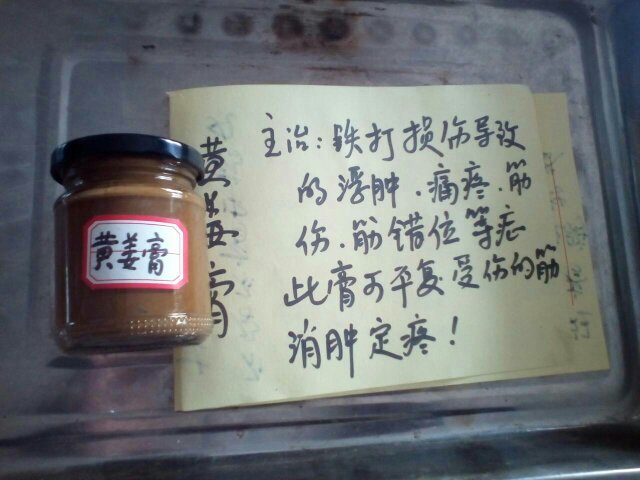 黄姜膏
黄姜膏
主治：铁打损伤导致
的浮肿．痛疼．筋
伤．筋错位等症
此膏可平复受伤的筋
消肿定疼！